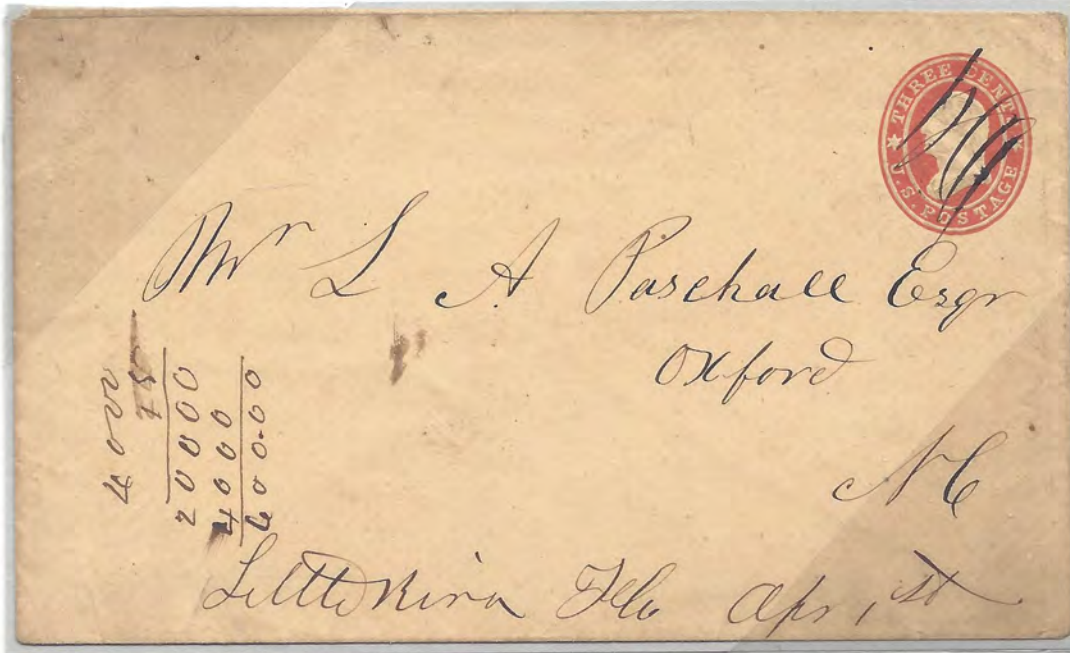 THREE CENTS
U.S. POSTAGE
Mr L A Paschall Esqr
Oxford
N C
4000
15
20000
4000
600.00
Fla Apr 1st